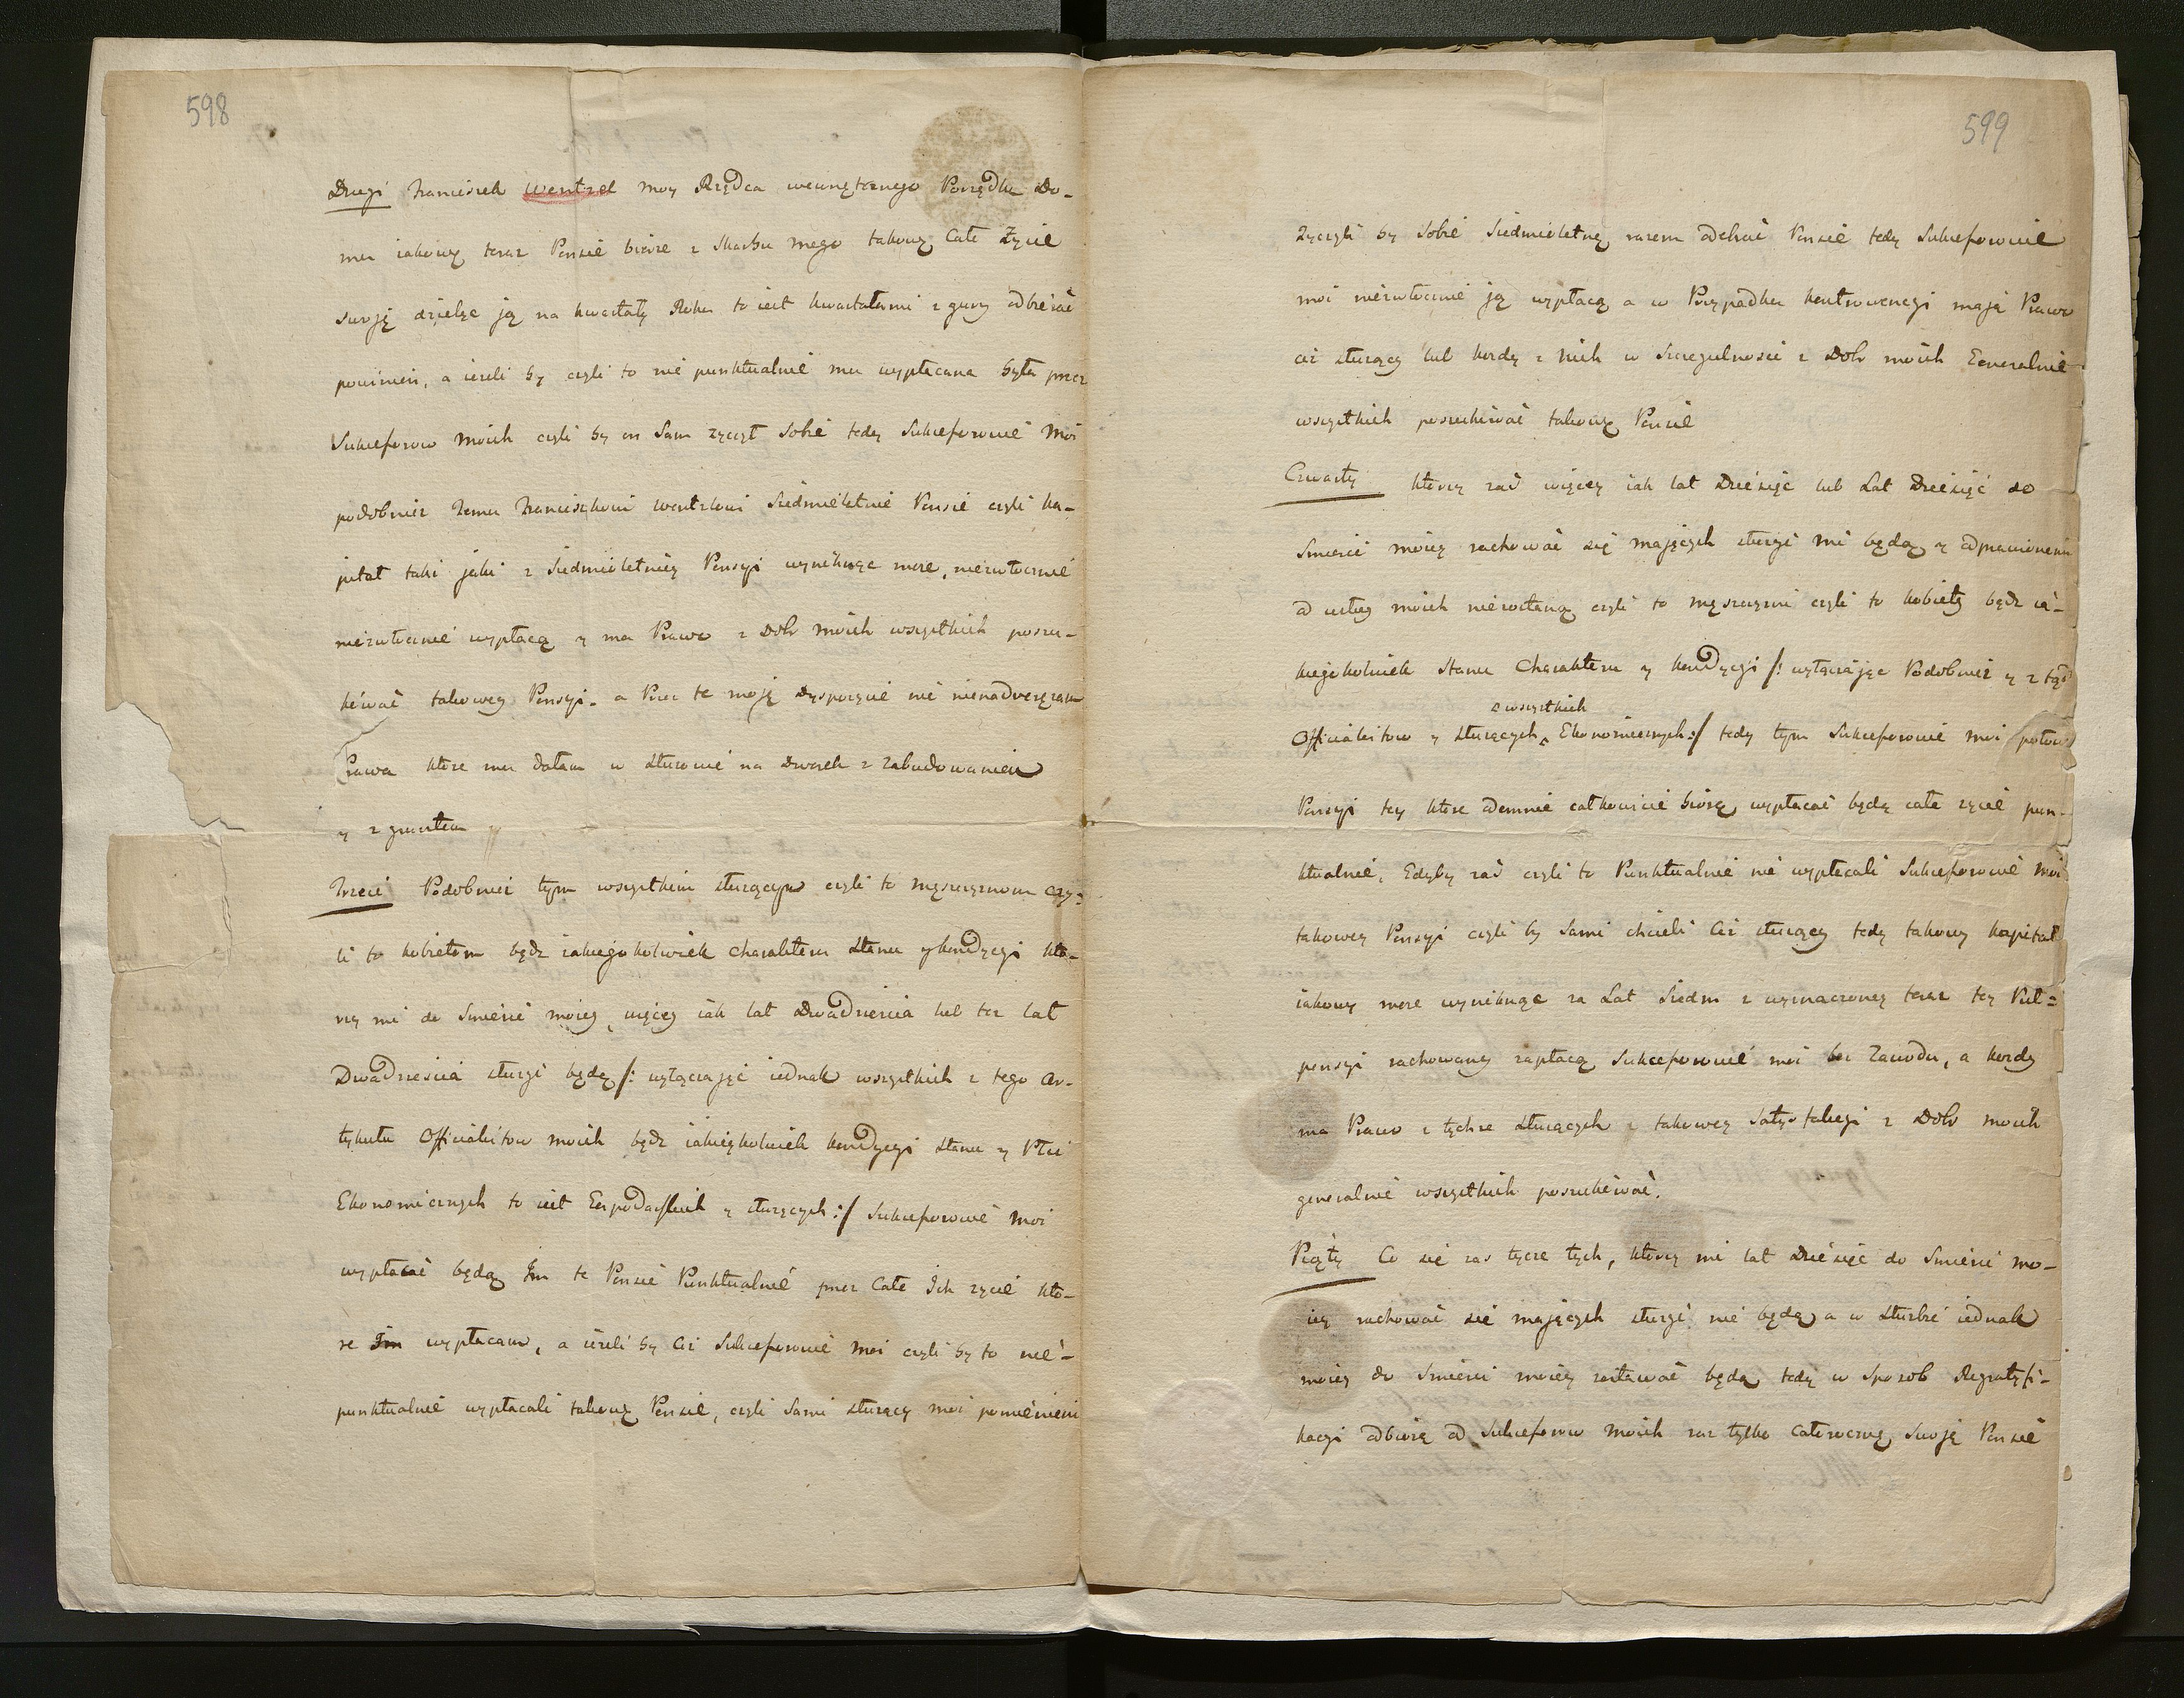 598
Drugi Franciszek Wentzel moy Rządca wewnętrznego Porządku Do-
mu iakową teraz Pensie bierze z Skarbu mego takową Całe Zycie
swoję dzieląc ją na kwartały Roku to iest kwartałami z gury odbierać
powinien, a ieżeli by czyli to nie punktualnie mu wypłacana była przez
Sukcessorow moich czyli by on Sam zyczył Sobie tedy Sukcessorowie moi
podobniez temu Franciszkowi Wentzlowi Siedmioletnie Pensie czyli ka-
pitał taki jaki z Siedmioletniey Pensyi wyniknąc moze, niezwłocznie
niezwłocznie wypłacą y ma Prawo z Dobr moich wszystkich poszu-
kiwać takowey Pensyi. a Przez te moją Dyspozycie nie nienadweręzam
Prawa ktore mu dałam w Słuzonie na Dworek z Zabudowaniem
y z gruntem
Trzeci Podobniez tym wszystkim słuzącym czyli to męszczyznom czy-
li to kobietom będz iakiegokolwiek charakteru Stanu y kondycyi kto-
rzy mi do Smierci moiey, więcey iak lat Dwadziescia lub tez lat
Dwadziescia słuzyć będą /: wyłączając iednak wszystkich z tego Ar-
tykułu Officialistow moich będz iakieykolwiek kondycyi Stanu y Płci
Ekonomicznych to iest Gospodarskich y słuzących :/ Sukcessorowie moi
wypłacać będą Im te Pensie Punktualnie przez Całe Ich zycie kto-
re Im wypłacam, a iezeli by Ciz Sukcessorowie moi czyli by to nie-
punktualnie wypłacali takową Pensie, czyli Sami słuzący moi pomienieni
599
zyczyli by Sobie Siedmioletnią razem odebrać Pensie tedy Sukcessorowie
moi niezwłocznie ją wypłacą a w Przypadku kontrowencyi mają Prawo
ciz słuzący lub kozdy z nich w Szczegulnosci z Dobr moich Generalnie
wszystkich poszukiwać takową Pensie
Czwarty ktorzy zaś więcey iak lat Dziesięć lub Lat Dziesięć do
Smierci moiey rachować się mających słuzyć mi będą y odprawionemi
od usług moich niezostaną czyli to męszczyzni czyli to kobiety będz ia-
kiegokolwiek Stanu Charakteru y kondycyi /: wyłączając Podobniez y z tąd
wszystkich
Officialistow y słuzących Ekonomicznych :/ tedy tym Sukcessorowie moi połowę
Pensyi tey ktore odemnie całkowicie biorą, wypłacać będą całe zycie pun-
ktualnie, Gdyby zaś czyli to Punktualnie nie wypłacali Sukcessorowie moi
takowey Pensyi czyli by Sami chcieli Ciz słuzący tedy takowy kapitał
iakowy moze wyniknąc za Lat Siedm z wyznaczoney teraz tey Puł-
pensyi rachowany zapłacą Sukcessorowie moi bez Zawodu, a kozdy
ma Prawo z tychze słuzących takowey Satysfakcyi z Dobr moich
generalnie wszystkich poszukiwać.
Piąty Co się zas tycze tych, ktorzy mi lat Dziesięć do Smierci mo-
iey rachować się mających słuzyć nie będą a w słuzbie iednak
moiey do Smierci moiey zostawać będą tedy w Sposob Regratyfi-
kacyi odbiorą od Sukcessorow moich raz tylko Całoroczną Swoją Pensie